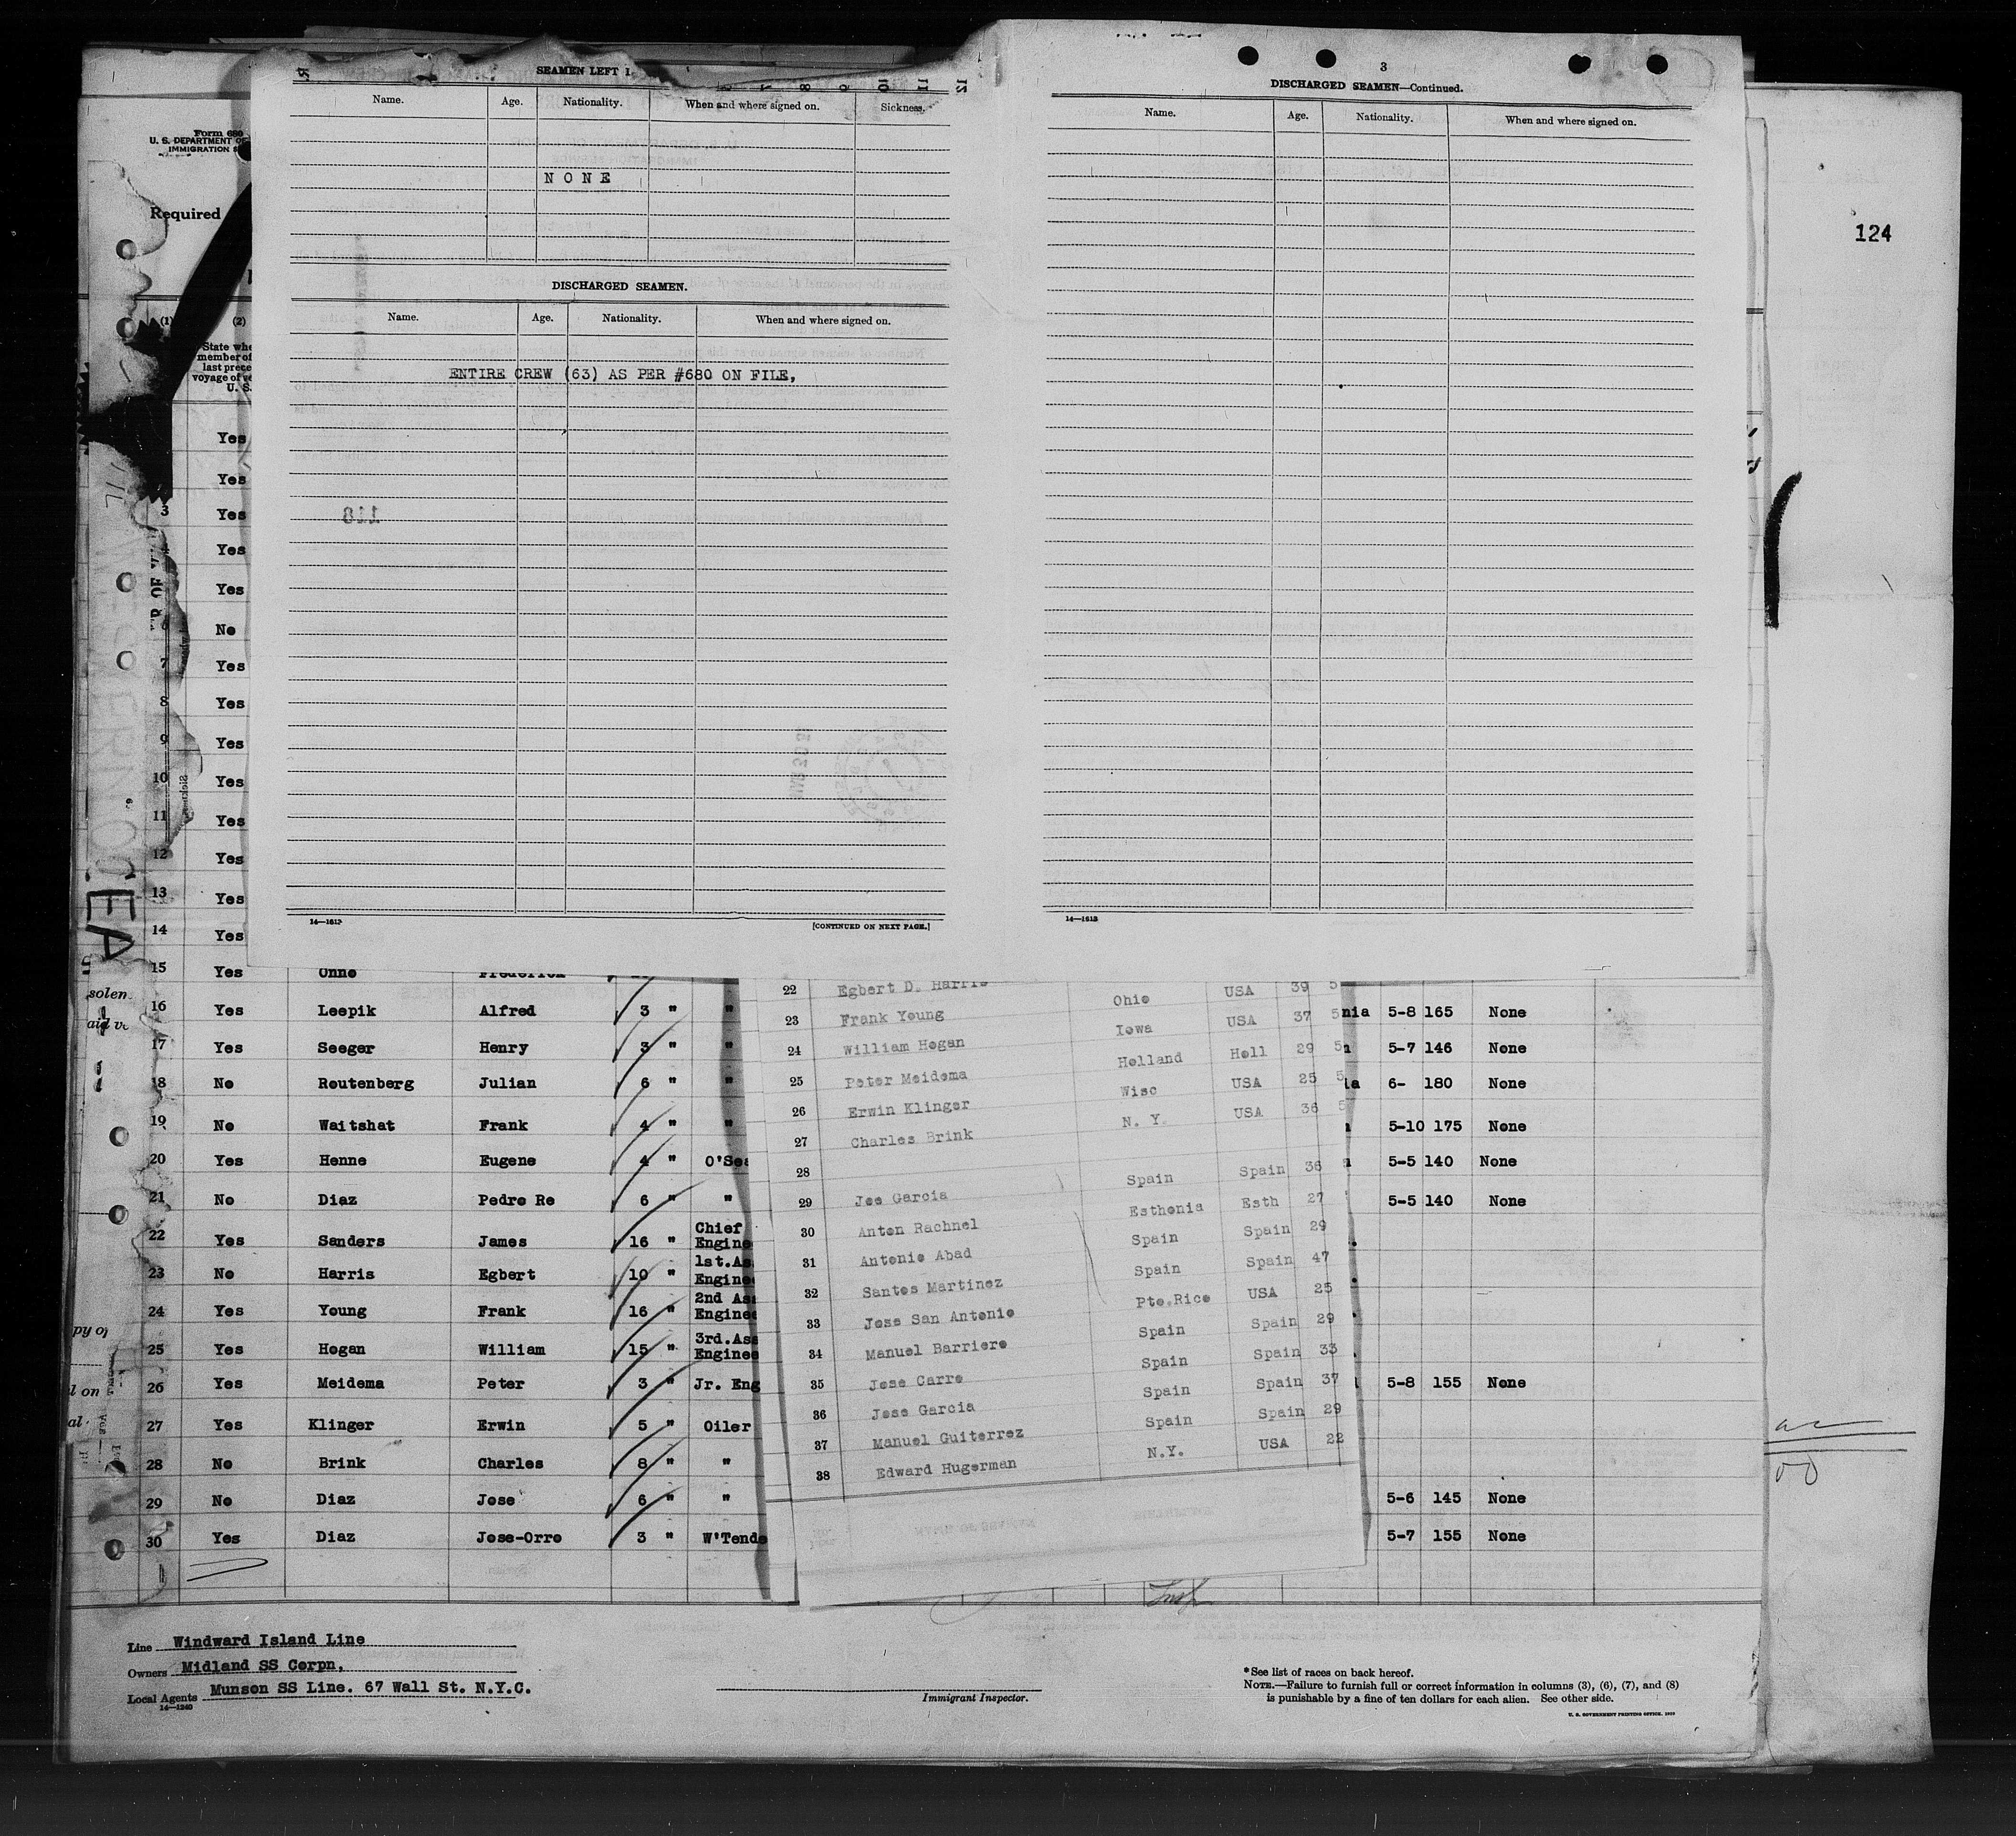 SEAMEN LEFT I
Name. Age. Nationality. When and where signed on. Sickness.
NONE
DISCHARGED SEAMEN.
Name. Age. Nationality. When and where signed on.
ENTIRE CREW (63) AS PER #680 ON FILE,
118
14—1613
[CONTINUED ON NEXT PAGE.]
3
DISCHARGED SEAMEN—Continued.
Name. Age. Nationality. When and where signed on.
14—1613
124
Form 680
U. S. DEPARTMENT OF
IMMIGRATION S
Required
(1) (2)
State whe
member of
last prece
voyage of ve
U. S.
Yes
Yes
3 Yes
Yes
Yes
6 No
7 Yes
8 Yes
9 Yes
10 Yes
11 Yes
12 Yes
13 Yes
14 Yes
15 Yes Onno Frederick
16 Yes Leepik Alfred 3 " " nia 5-8 165 None
17 Yes Seeger Henry 3 " " 5-7 146 None
18 No Routenberg Julian 6 " " 6- 180 None
19 No Waitshat Frank 4 " " 5-10 175 None
20 Yes Henne Eugene 4 " O'Sea 5-5 140 None
21 No Diaz Pedro Re 6 " " 5-5 140 None
22 Yes Sanders James 16 " Chief Engine
23 No Harris Egbert 10 " 1st.As Enginee
24 Yes Young Frank 16 " 2nd Ass Enginee
25 Yes Hogan William 15 " 3rd.Ass Enginee
26 Yes Meidema Peter 3 " Jr. Eng 5-8 155 None
27 Yes Klinger Erwin 5 " Oiler
28 No Brink Charles 8 " "
29 No Diaz Jose 6 " " 5-6 145 None
30 Yes Diaz Jose-Orro 3 " W'Tende 5-7 155 None
22 Egbert D. Harris Ohio USA 39 5
23 Frank Young Iowa USA 37 5
24 William Hogan Holland Holl 29 5
25 Peter Meidema Wisc USA 25 5
26 Erwin Klinger N. Y. USA 36 5
27 Charles Brink
28 Spain Spain 36
29 Joe Garcia Esthonia Esth 27
30 Anton Rachnel Spain Spain 29
31 Antonio Abad Spain Spain 47
32 Santos Martinez Pto.Rico USA 25
33 Jose San Antonio Spain Spain 29
34 Manuel Barriero Spain Spain 33
35 Jose Carro Spain Spain 37
36 Jose Garcia Spain Spain 29
37 Manuel Guiterrez N.Y. USA 22
38 Edward Hugerman
EA
solen
aid ve
py of
l on
al
Line Windward Island Line
Owners Midland SS Corpn.
Local Agents Munson SS Line. 67 Wall St. N.Y.C.
14—1240
Immigrant Inspector.
*See list of races on back hereof.
NOTE.—Failure to furnish full or correct information in columns (3), (6), (7), and (8)
is punishable by a fine of ten dollars for each alien. See other side.
U. S. GOVERNMENT PRINTING OFFICE.